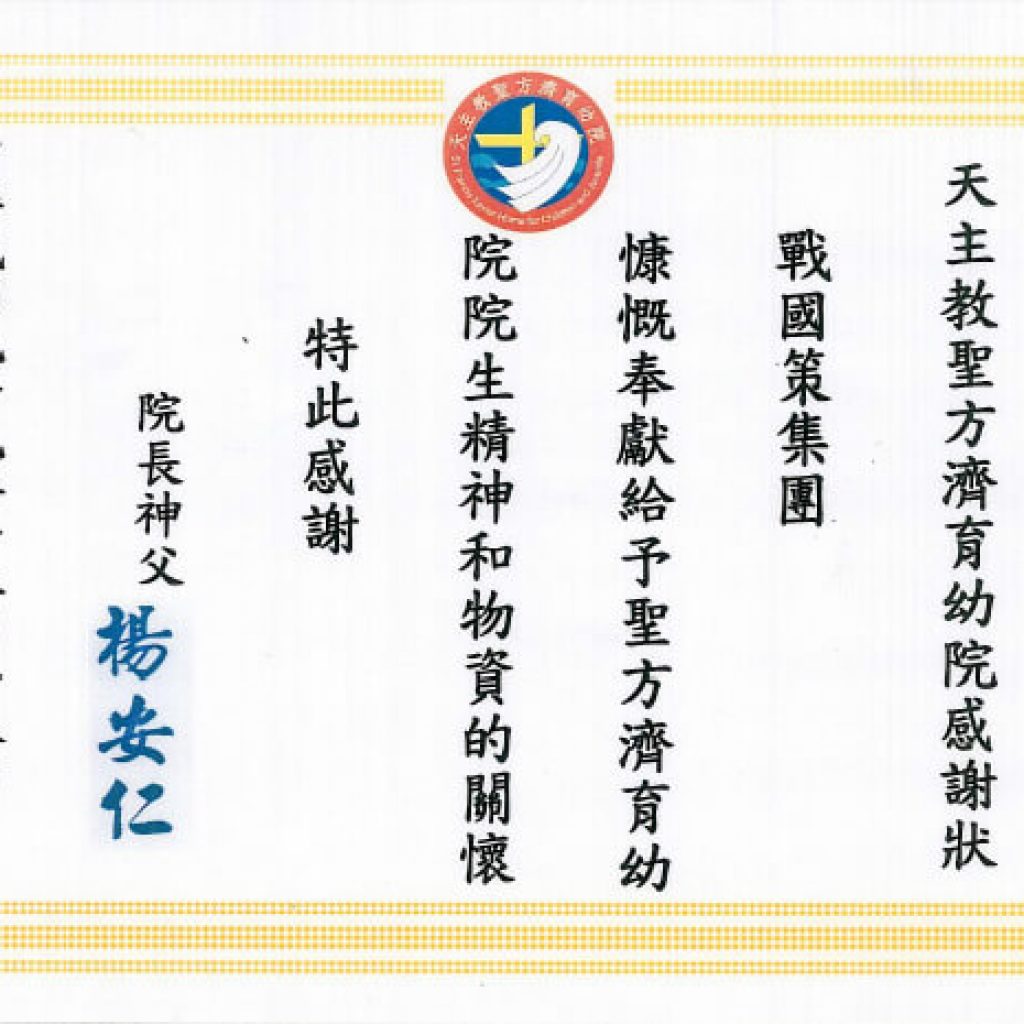 天主教聖方濟育幼院感謝狀
戰國策集團
慷慨奉獻給予聖方濟育幼
院院生精神和物資的關懷
特此感謝
院長神父
楊安仁
天主教聖方濟育幼院